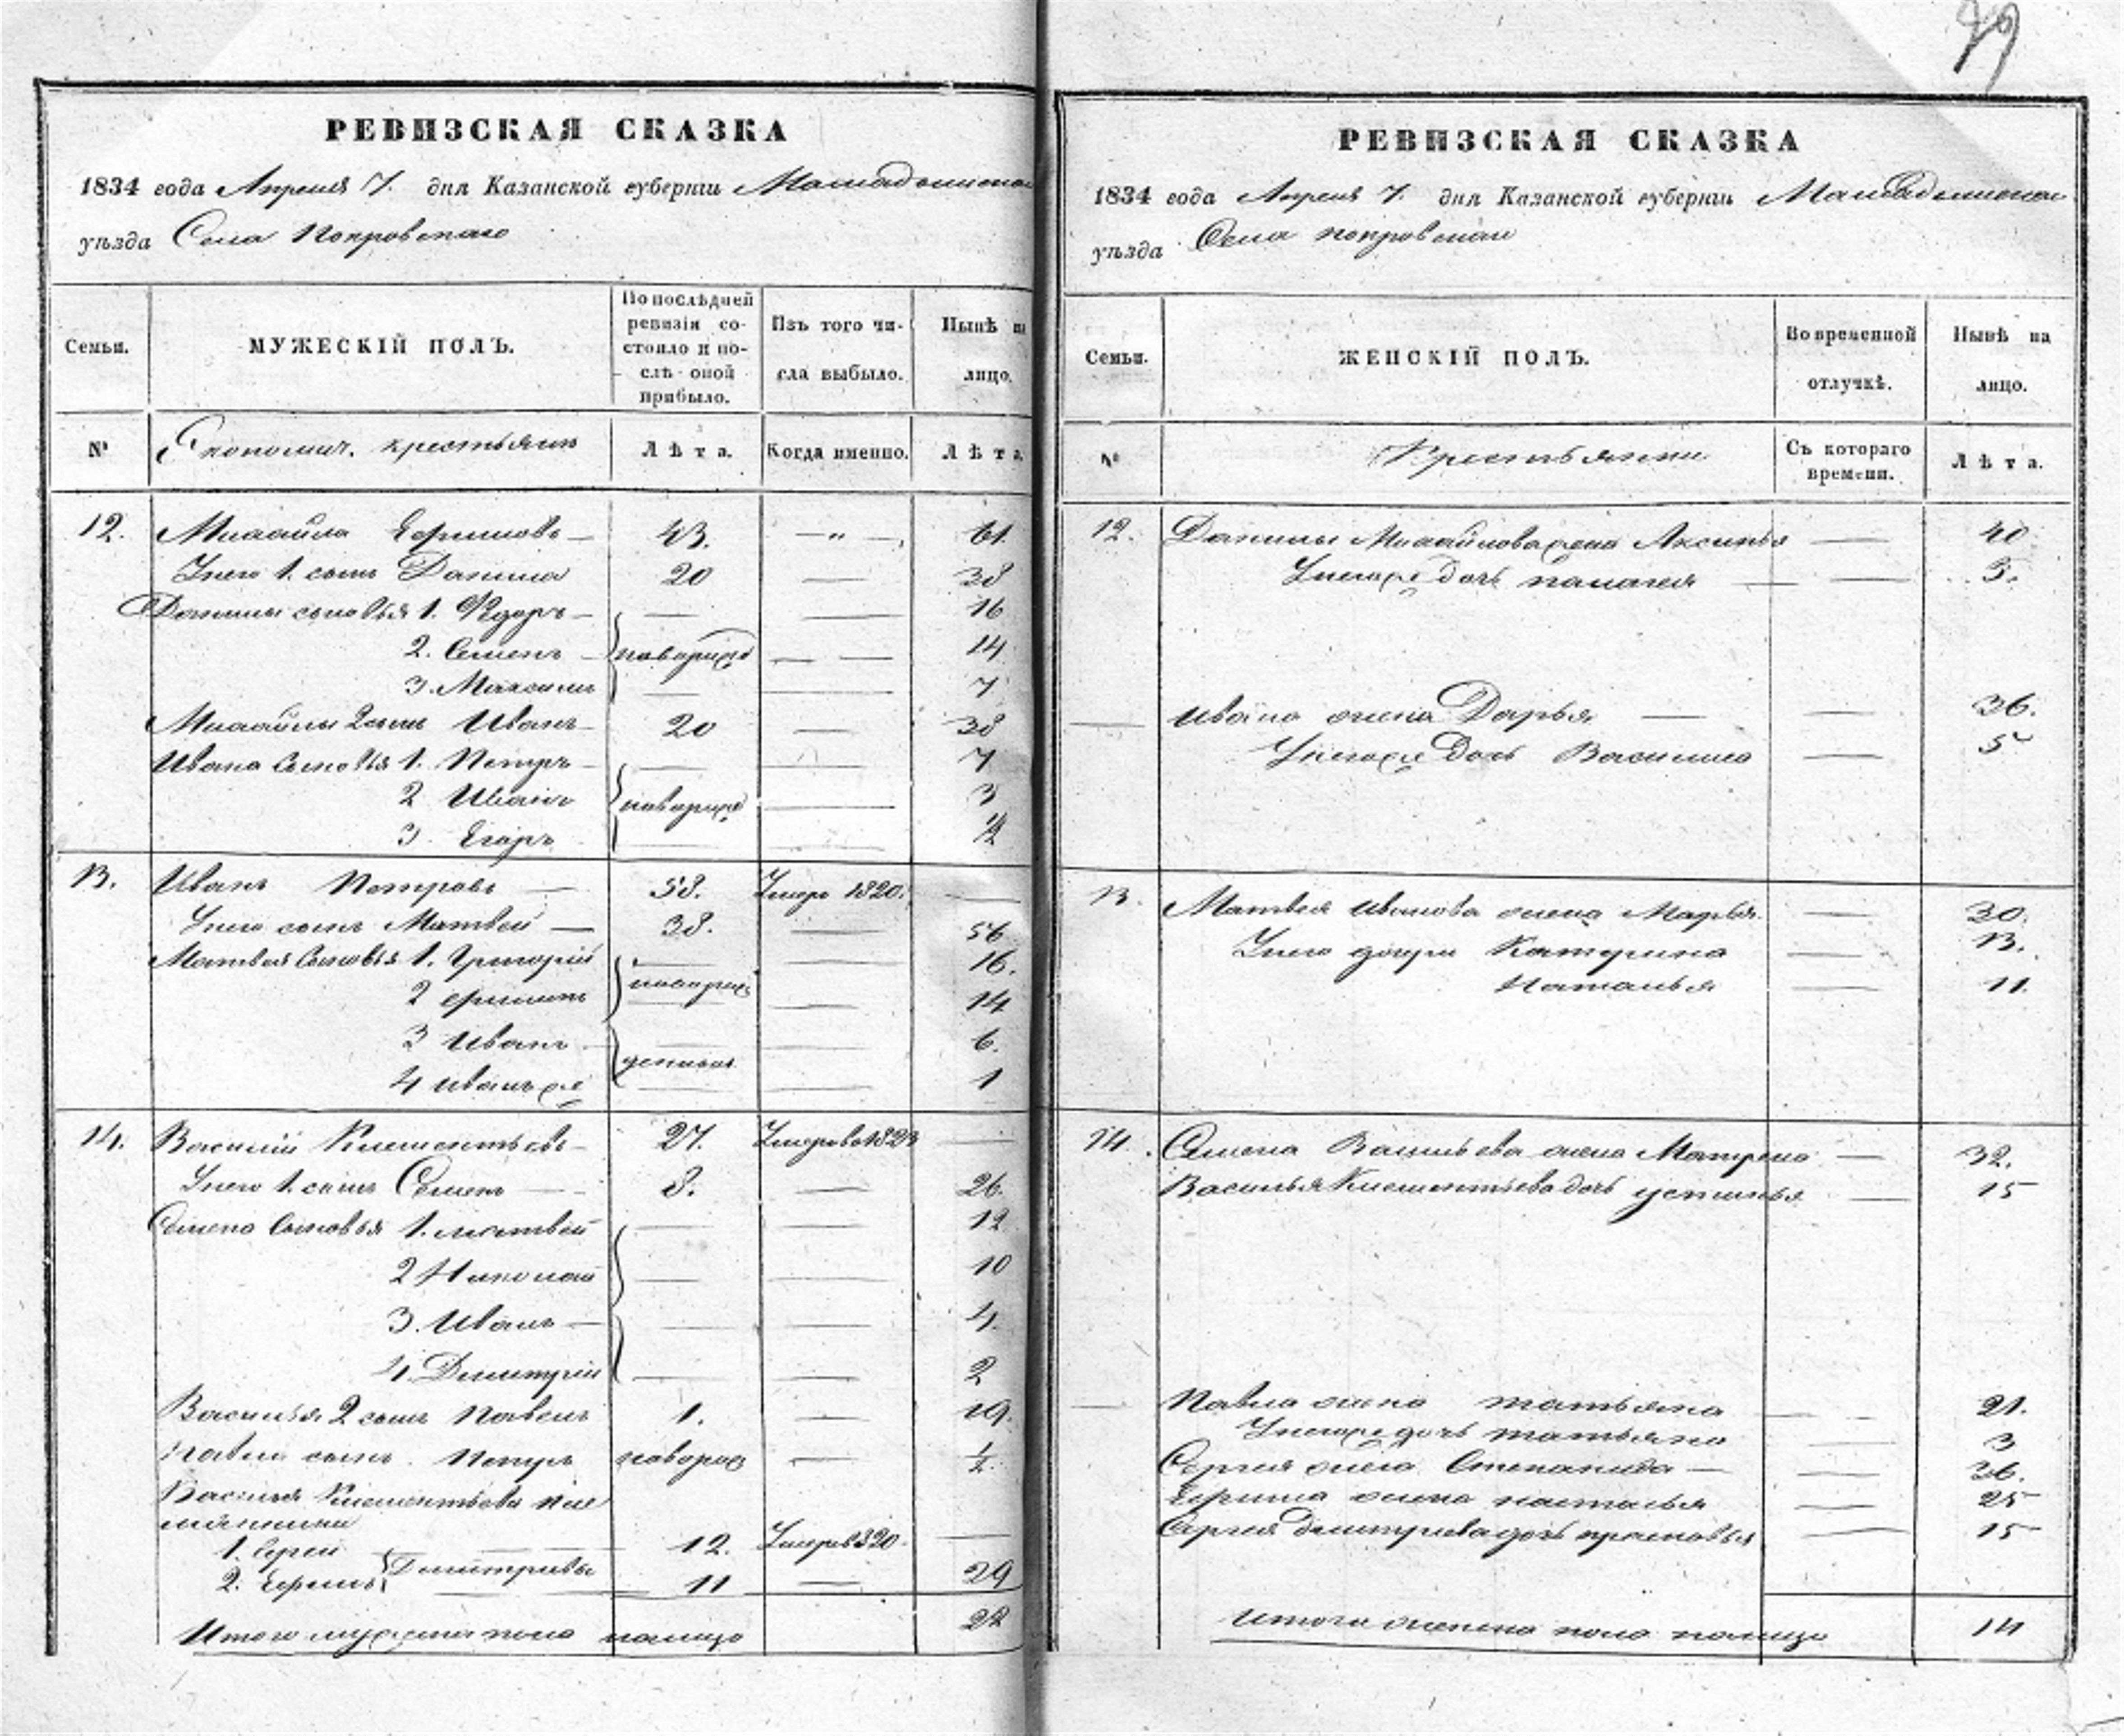 79
РЕВИЗСКАЯ СКАЗКА
1834 года Апреля 7. дня Казанской губерніи Мамадышскаго
уѣзда Села Покровскаго
Семьи.
МУЖЕСКІЙ ПОЛЪ.
По послѣдней ревизіи состояло и послѣ оной прибыло.
Изъ того числа выбыло.
Нынѣ на лицо.
№ Экономич. крестьяне Лѣта. Когда именно. Лѣта
12. Михайла Ефимовъ — 43. — " — 61.
Унего 1. сынъ Данила 20 — 38
Данилы сыновья 1. Федоръ — — — 16
2. Семенъ — новорожд — — 14
3. Максимъ — — 7
Михайлы 2 сынъ Иванъ — 20 — 38
Ивана Сыновья 1. Петръ — — — 7
2 Иванъ новорожд — 3
3 Егоръ — — 1/2
13. Иванъ Петровъ — 58. Умеръ 1820. —
Унего сынъ Матвей — 38. — 56
Матвея Сыновья 1. Григорій — — 16.
2 Филипъ новорожд — 14
3 Иванъ — — — 6.
4 Иванъ же — — 1
14. Василій Климентьевъ — 27. Умеръ в 1823 —
Унего 1. сынъ Семенъ — 8. — 26.
Семена Сыновья 1. Матвей — — 12
2 Николай — — 10
3. Иванъ — — — 4.
4. Дмитрій — — 2
Василья 2 сынъ Павелъ 1. — 19.
Павла сынъ. Петръ новорож — 1/2
Василья Климентьева пле
мянники
1. Сергей 12. Умеръ 820. —
2. Ефимъ Дмитріевы 11 — 29
Итого мужеска пола налицо 22
РЕВИЗСКАЯ СКАЗКА
1834 года Апреля 7. дня Казанской губерніи Мамадышскаго
уѣзда Села покровскаго
Семьи.
ЖЕНСКІЙ ПОЛЪ.
Во временной отлучкѣ.
Нынѣ на лицо.
№ Крестьянки Съ котораго времени. Лѣта.
12. Данилы Михайлова жена Аксинья — 40
Унегоже дочь палагея — — 5.
— Ивана жена Дарья — — 36.
Унегоже Дочь Василиса — 5
13. Матвея Иванова жена Марья. — 30.
Унего дочери Катерина — 13.
Наталья — 11.
14. Семена Васильева жена Матрена — 32.
Василья Климентьева дочь устинья — 15
— Павла жена татьяна — — 21.
Унегоже дочь татьяна — 3
Сергея жена Степанида — — 36.
Ефима жена настасья — 25
Сергея Дмитріева дочь прасковья — 15
Итого женска пола налицо 14